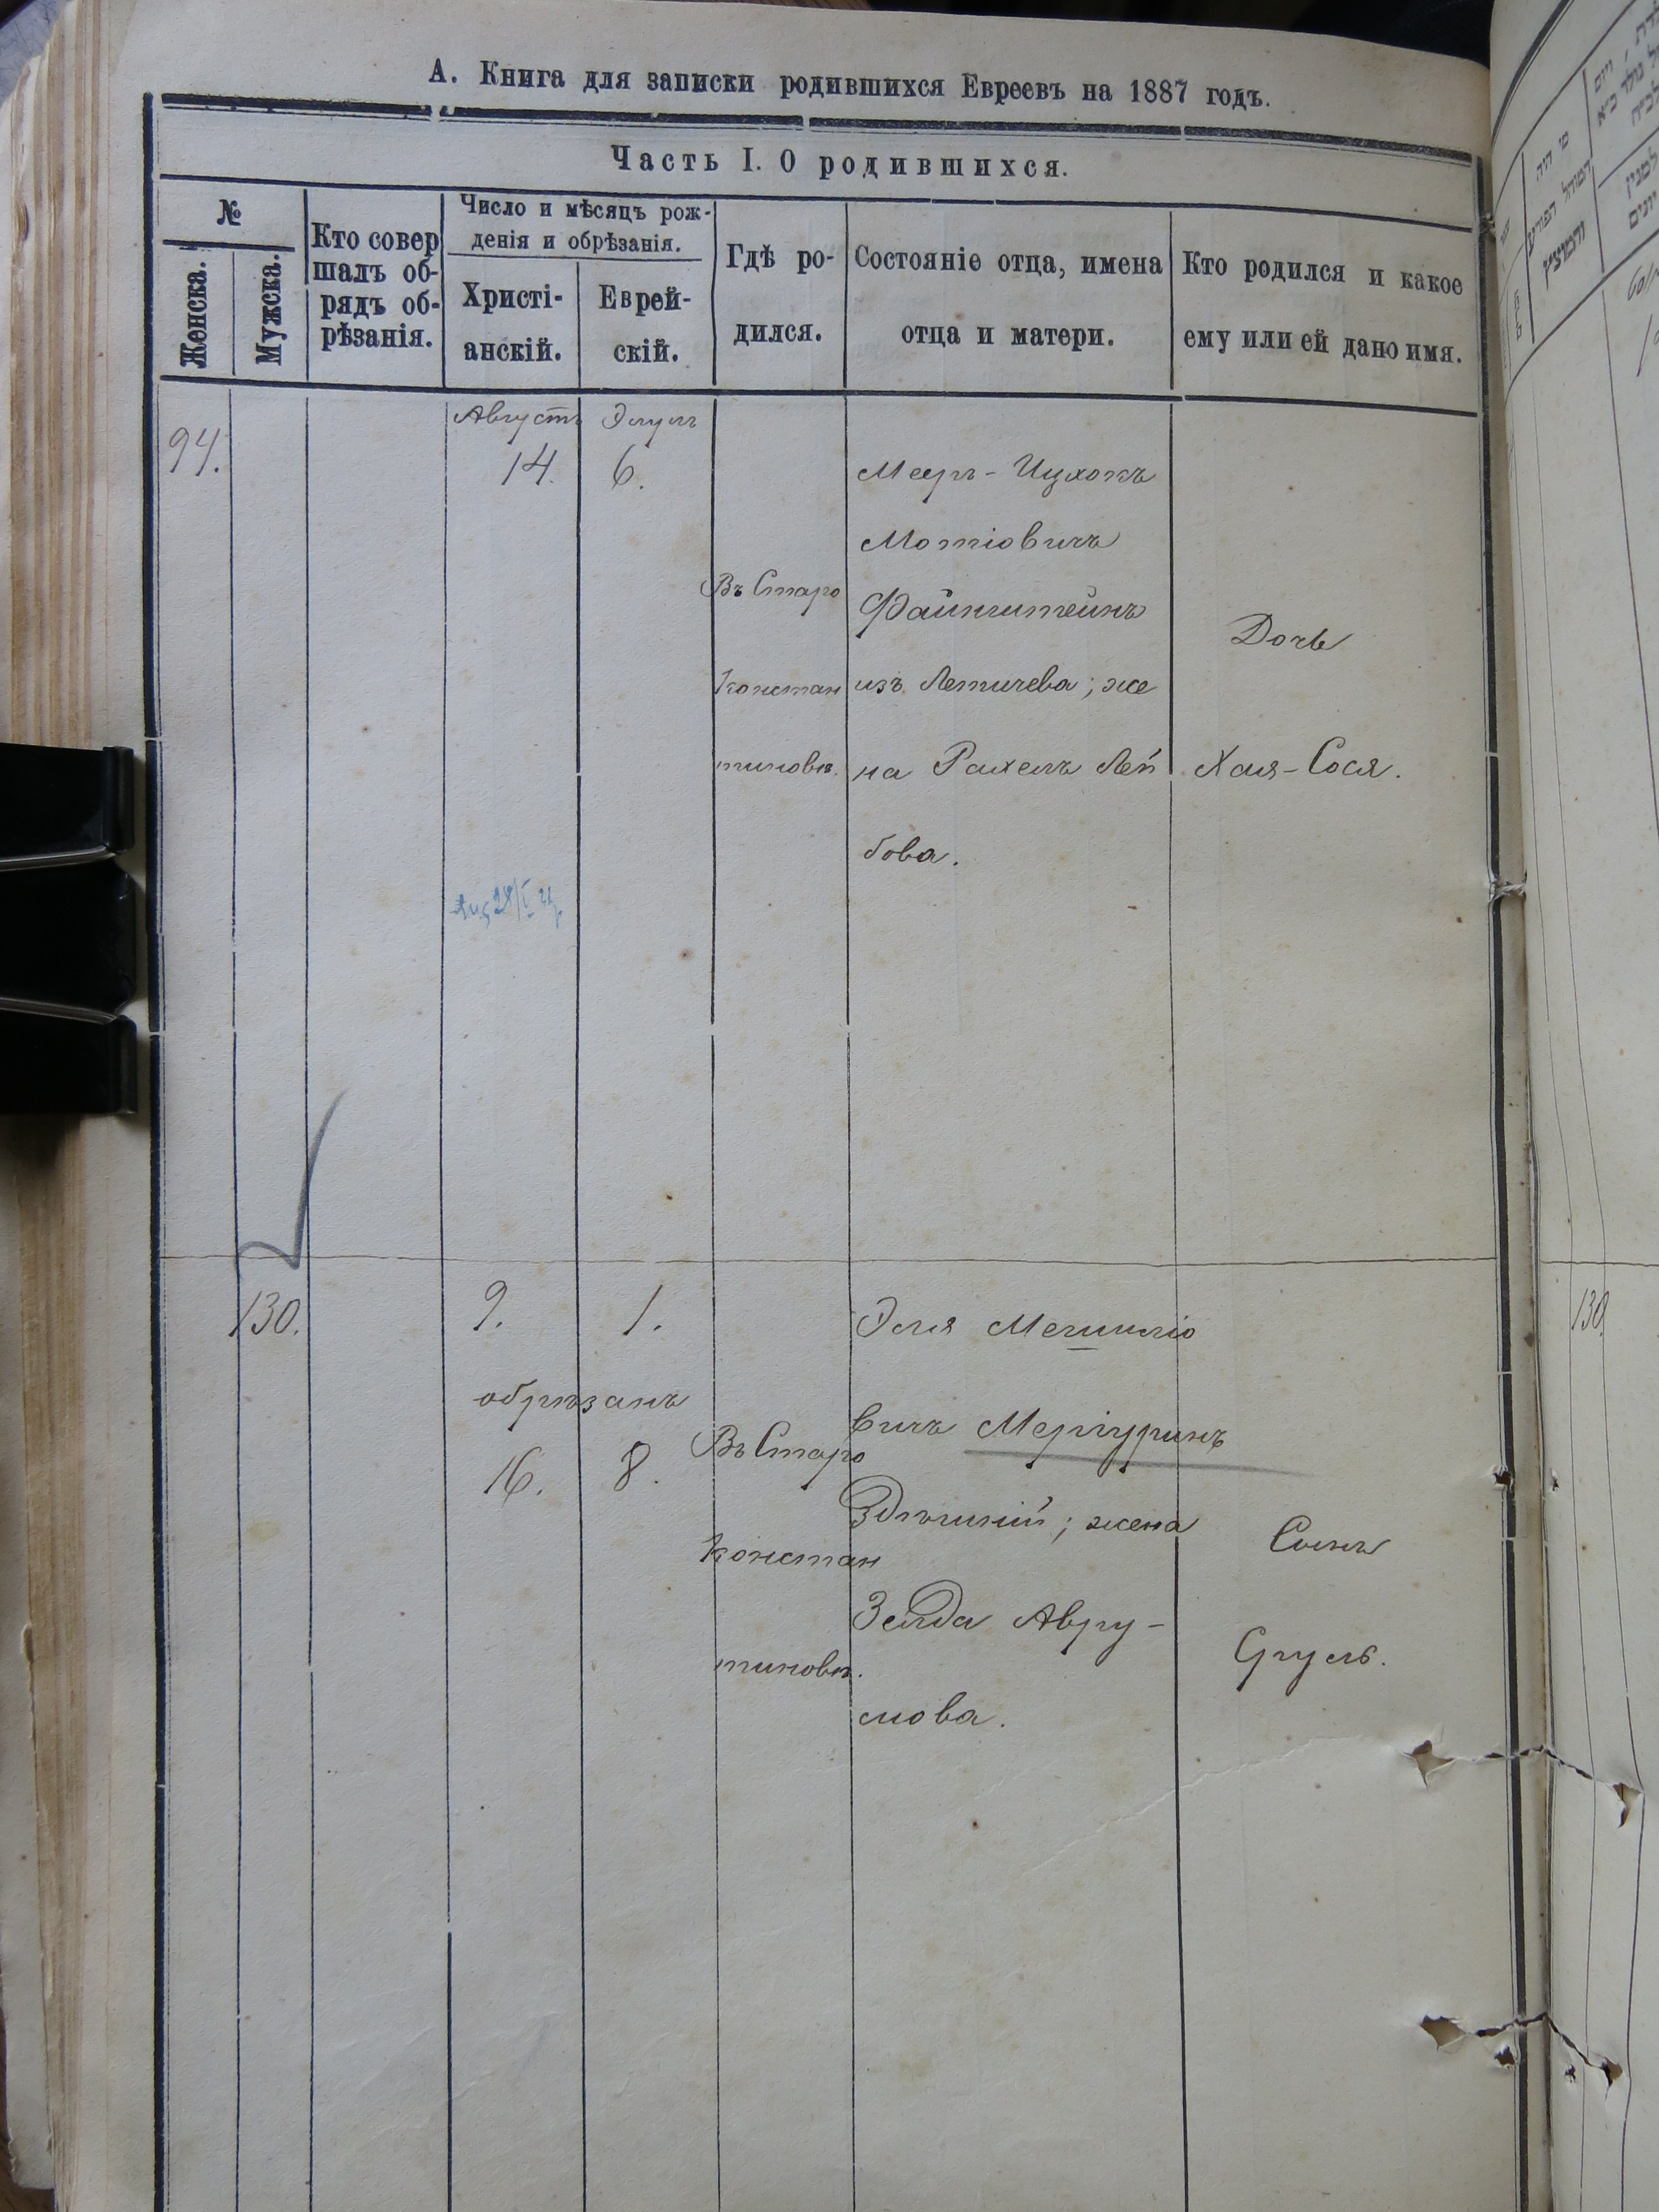 А. Книга для записки родившихся Евреевъ на 1887 годъ.
Часть I. О родившихся.
№
Женска.
Мужска.
Кто совер
шалъ об-
рядъ об-
рѣзанія.
Число и мѣсяцъ рож-
денія и обрѣзанія.
Христі-
анскій.
Еврей-
скій.
Гдѣ ро-
дился.
Состояніе отца, имена
отца и матери.
Кто родился и какое
ему или ей дано имя.
94.
Августъ
14.
Элулъ
6.
Въ Старо
констан
тиновѣ.
Мееръ-Ицхокъ
Мотіовичъ
Файнштейнъ
изъ Летичева; же
на Рахель Лей
бова.
Дочь
Хая-Сося.
130.
9.
1.
обрѣзанъ
16.
8.
Въ Старо
констан
тиновѣ.
Эля
вичъ
Здѣшній; жена
Зельда Авру-
мова.
Сынъ
Сруль.
130.